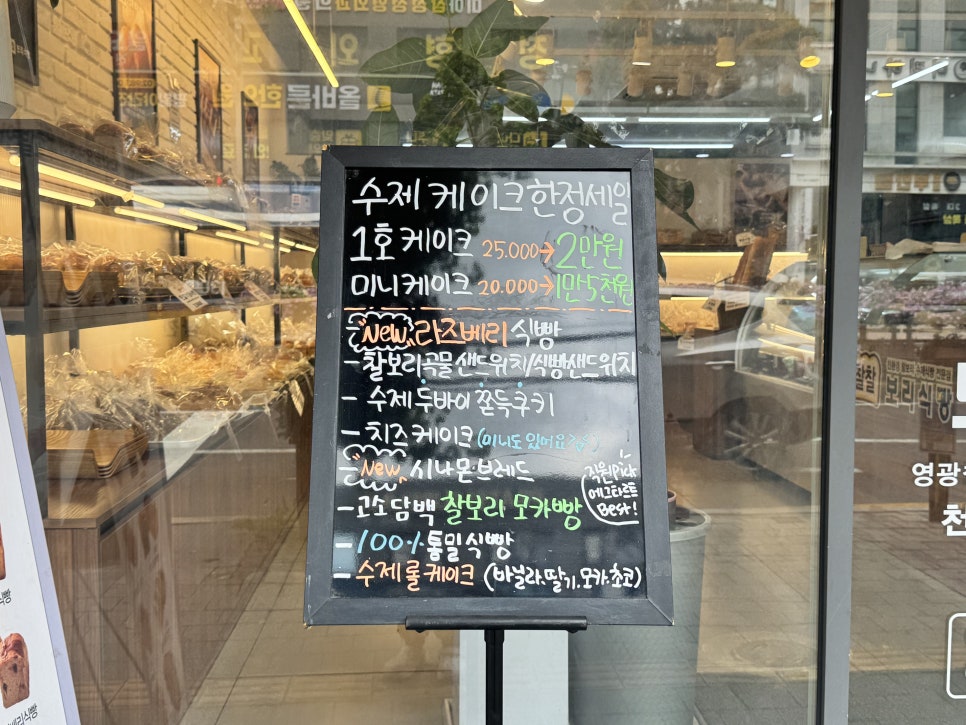 수제 케이크 한정세일
1호 케이크 25.000→2만원
미니케이크 20.000→1만5천원
New 라즈베리 식빵
-찰보리곡물샌드위치/식빵샌드위치
- 수제 두바이 쫀득쿠키
- 치즈케이크 (미니도 있어요
New 시나몬브레드
직원Pick
에그타르트
Best!
-고소담백 찰보리 모카빵
-100% 통밀식빵
- 수제 롤케이크 (바닐라.딸기.모카.초코)
찰찰
보리식빵
영광
천